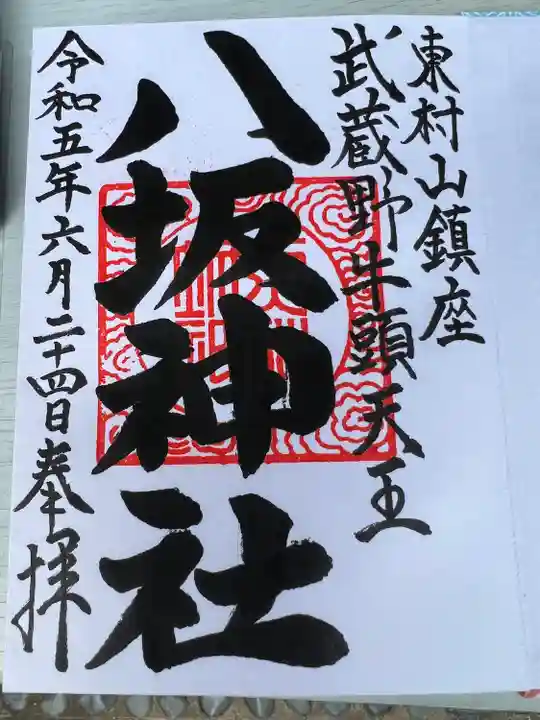 東村山鎮座
武蔵野牛頭天王
八坂神社
令和五年六月二十四日奉拝